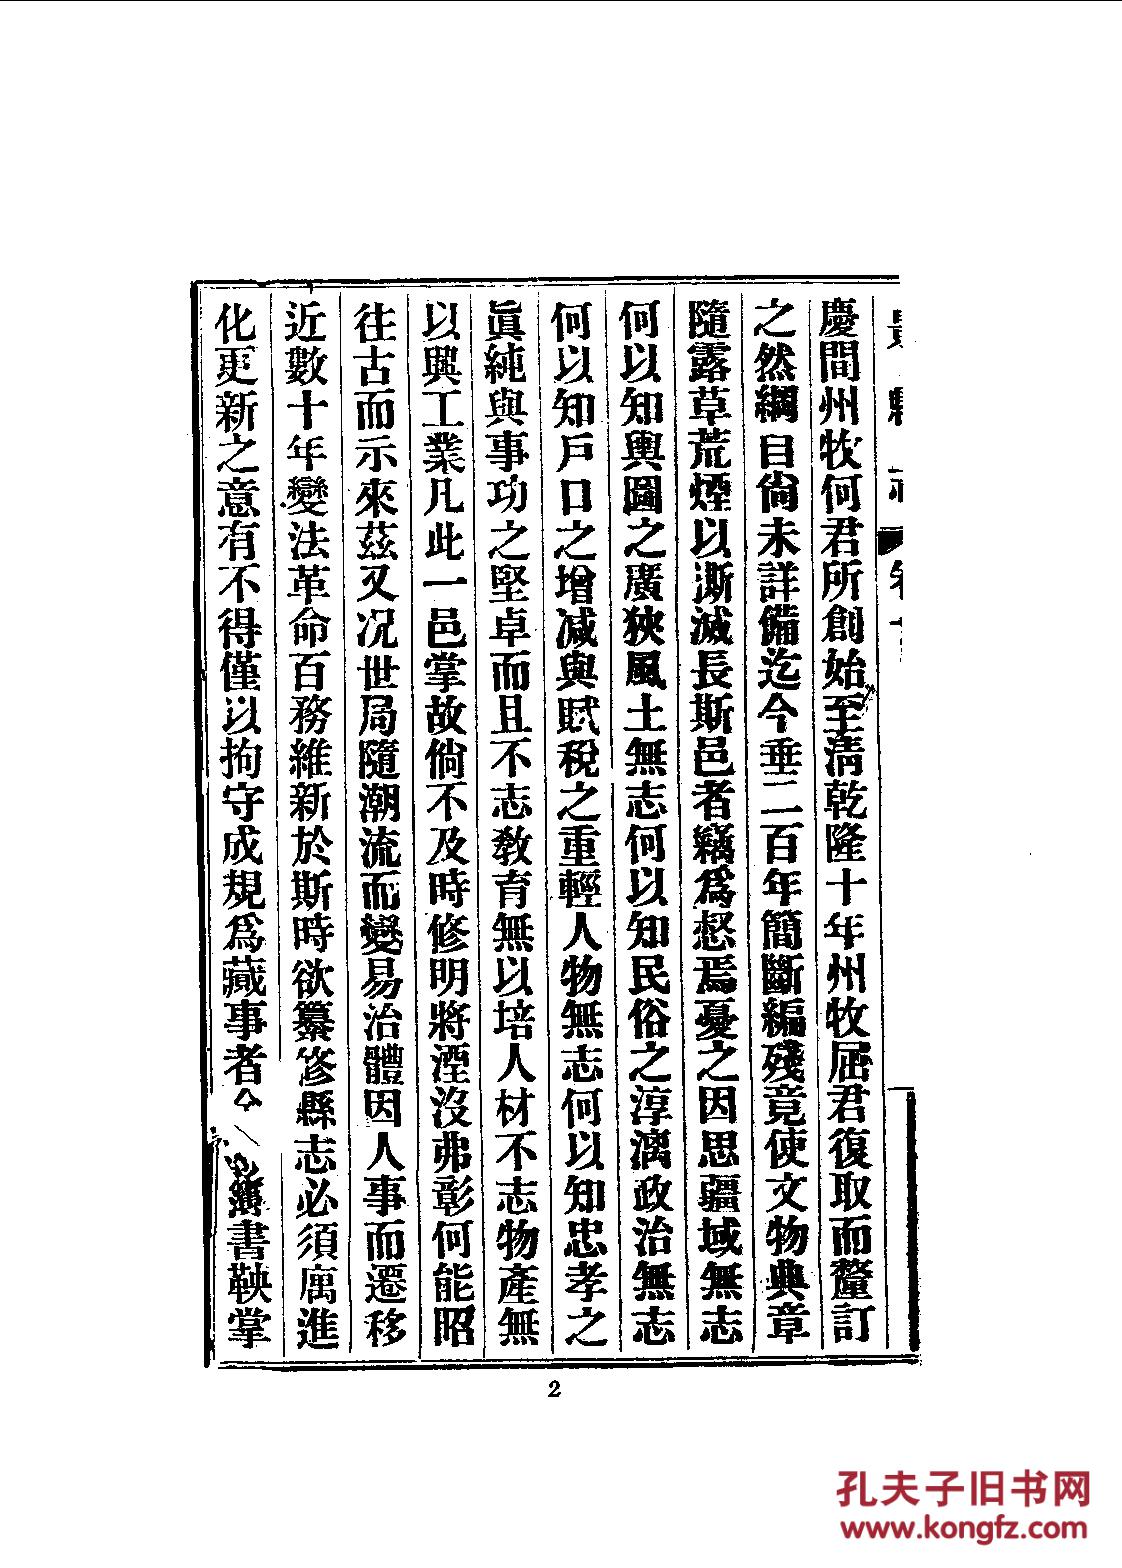 慶間州牧何君所創始至淸乾隆十年州牧屈君復取而釐訂
之然綱目尙未詳備迄今垂二百年簡斷編殘竟使文物典章
隨露草荒煙以澌滅長斯邑者竊爲惄焉憂之因思疆域無志
何以知輿圖之廣狹風土無志何以知民俗之淳漓政治無志
何以知戶口之增減與賦稅之重輕人物無志何以知忠孝之
眞純與事功之堅卓而且不志敎育無以培人材不志物產無
以興工業凡此一邑掌故倘不及時修明將湮沒弗彰何能昭
往古而示來茲又況世局隨潮流而變易治體因人事而遷移
近數十年變法革命百務維新於斯時欲纂修縣志必須厲進
化更新之意有不得僅以拘守成規爲蕆事者今書鞅掌
2
孔夫子旧书网
www.kongfz.com